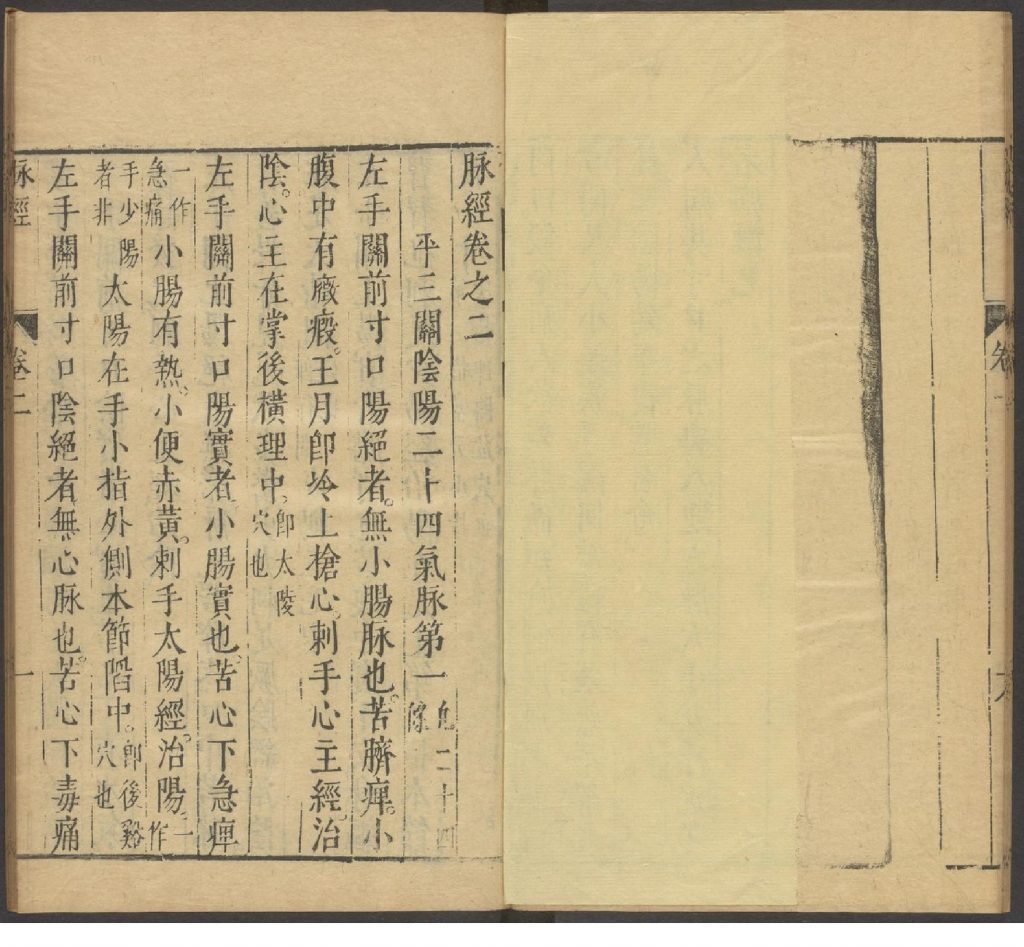 脉經卷之二
平三關陰陽二十四氣脉第一凡二十四條
左手關前寸口陽絕者。無小腸脉也。苦臍痺。小
腹中有㾈瘕。王月卽冷上搶心。刺手心主經。治
陰。心主在掌後橫理中。卽太陵穴也
左手關前寸口陽實者。小腸實也。苦心下急痺
一作急痛小腸有熱。小便赤黃。刺手太陽經。治陽。一作
手少陽者非太陽在手小指外側本節陷中。卽後谿穴也
左手關前寸口陰絕者。無心脉也。苦心下毒痛
脉經
卷二
一
卷一